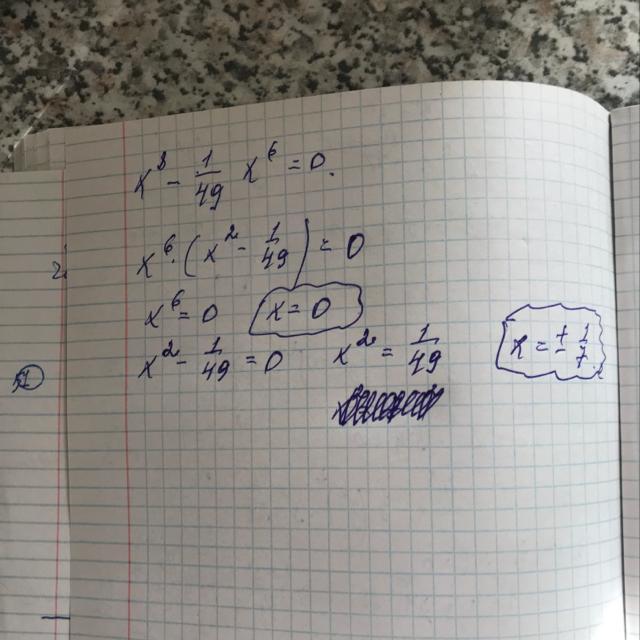 x⁸ - 1/49 x⁶ = 0.
x⁶·(x² - 1/49) = 0
x⁶ = 0 x = 0
x² - 1/49 = 0 x² = 1/49 x = ± 1/7